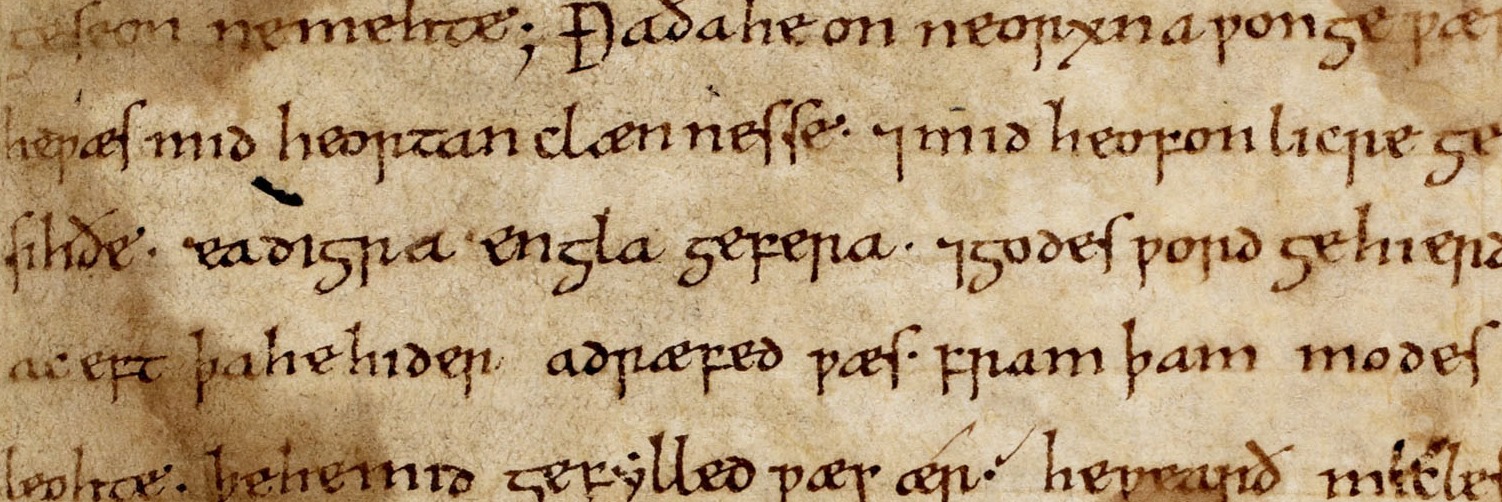 geseon ne mehte; Þa ða he on neorxna ƿonge ƿæs
he ƿæs mid heortan clænnesse· ⁊ mid heofonlicre ge
sihðe· eadigra engla gefera· ⁊ godes ƿord gehierd
ac eft þa he hider adræfed ƿæs· fram þam modes
leohte· þe he mid gefylled ƿæs ær· he ƿearð